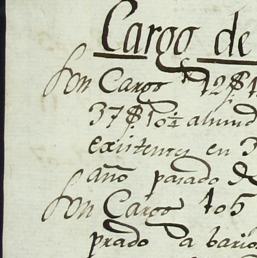 Cargo de
Son Cargo 12$1
37$10¼ almud
existentes en 3
año pasado de
Son Cargo 105
prado a bario